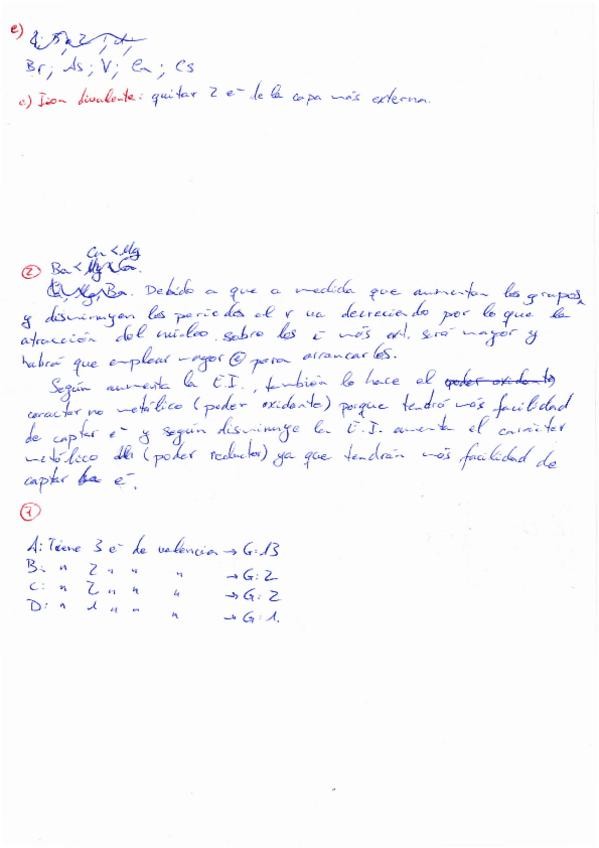 e)
Br; As; V; Ca; Cs
c) Ion divalente: quitar 2 e- de la capa más externa.
Ca < Mg
② Ba <
Ba. Debido a que a medida que aumentan los grupos
y disminuyen los periodos el r va decreciendo por lo que la
atracción del núcleo sobre los e- más ext. será mayor y
habrá que emplear mayor E para arrancarles.
Según aumenta la E.I., también lo hace el poder oxidante
caracter no metálico (poder oxidante) porque tendrá más facilidad
de captar e- y según disminuye la E.I. aumenta el carácter
metálico (poder reductor) ya que tendrán más facilidad de
captar e-.
⑦
A: Tiene 3 e- de valencia → G: 13
B: " 2 " " " → G: 2
C: " 2 " " " → G: 2
D: " 1 " " " → G: 1.